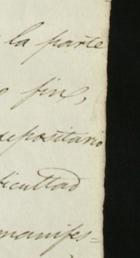 la parte
fin,
depositario
ficultad
manifes=